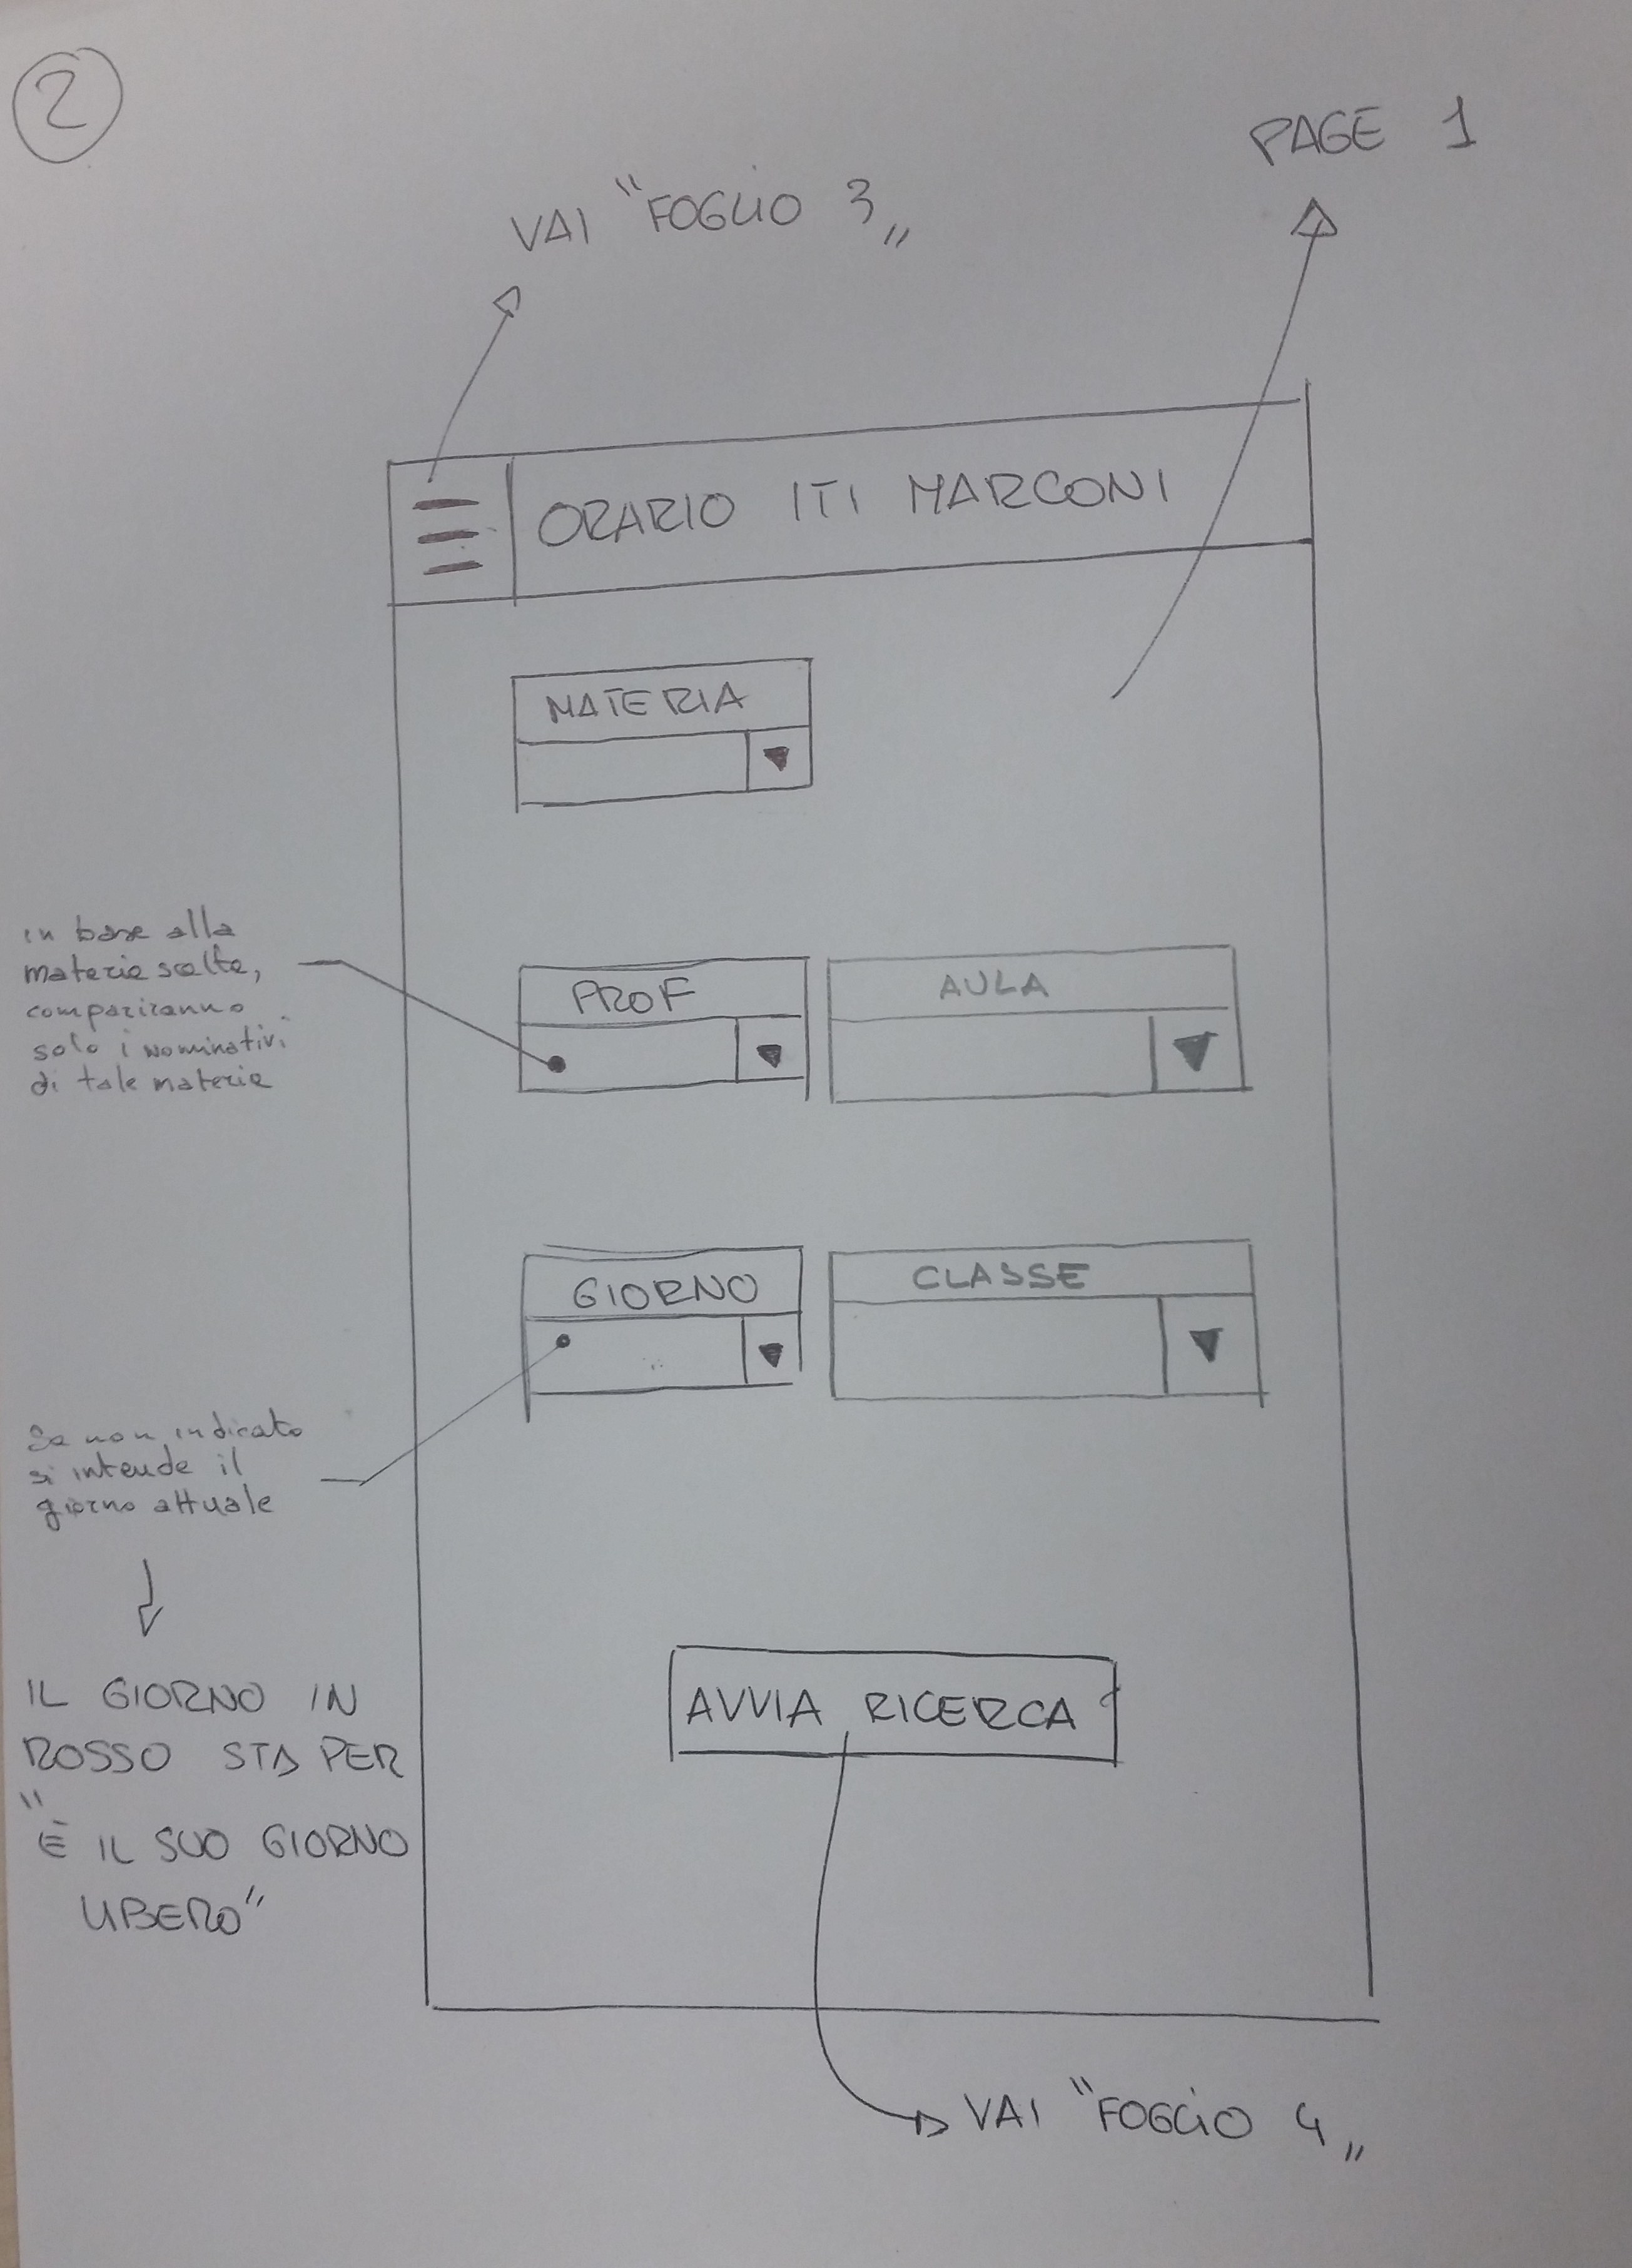 2
PAGE 1
VAI "FOGLIO 3„
ORARIO ITI MARCONI
MATERIA
in base alla
materia scelta,
compariranno
solo i nominativi
di tale materia
PROF
AULA
GIORNO
CLASSE
Se non indicato
si intende il
giorno attuale
IL GIORNO IN
ROSSO STA PER
"È IL SUO GIORNO
LIBERO"
AVVIA RICERCA
VAI "FOGLIO 4„